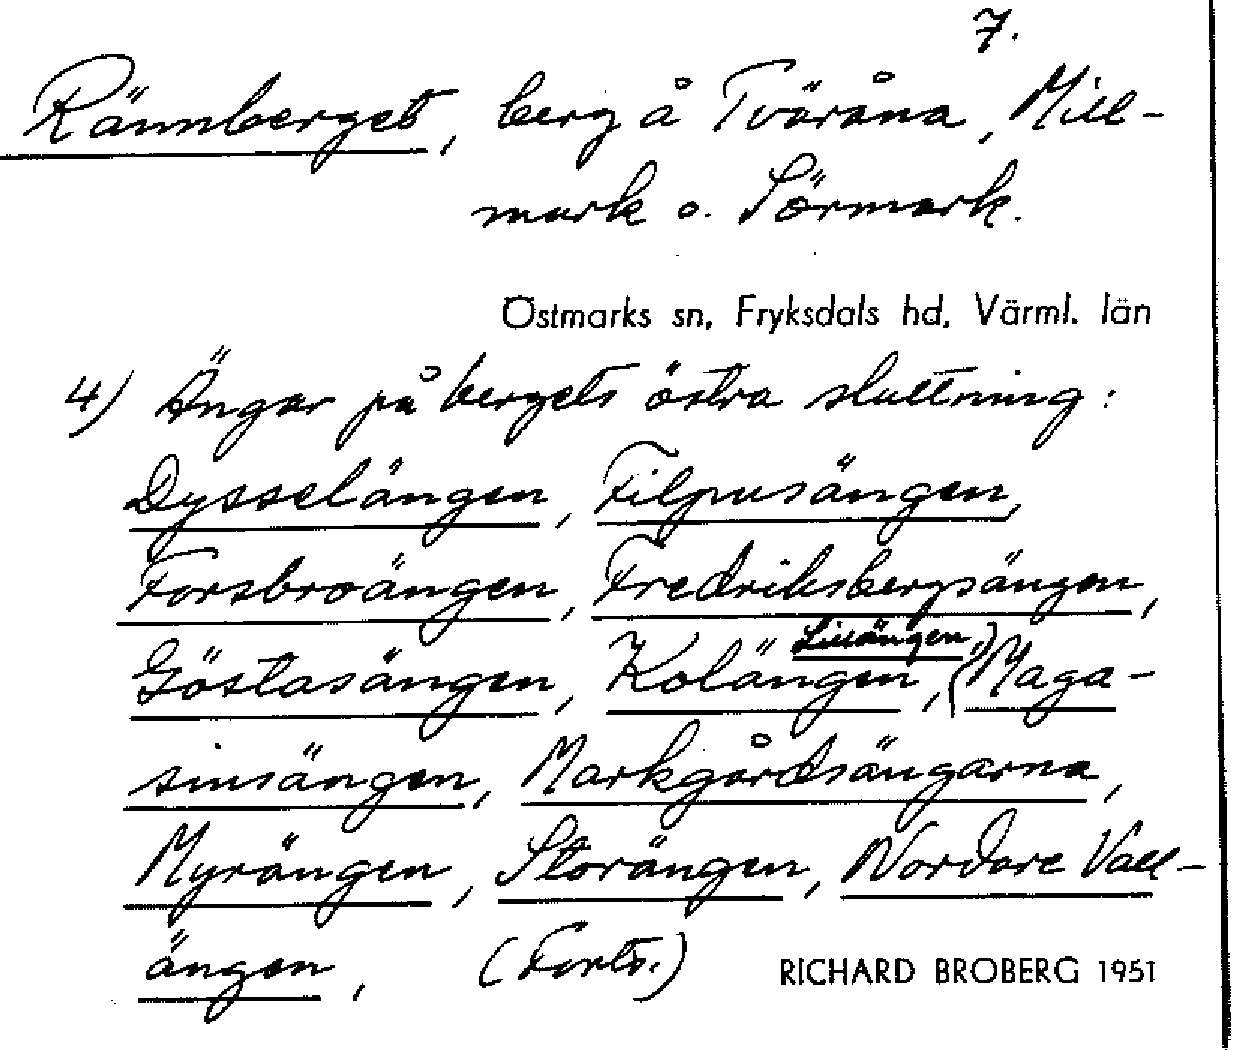 7.
Rännberget, berg å Tväråna, Mill-
mark o. Sörmark.
Östmarks sn, Fryksdals hd, Värml. län
4) Ängar på bergets östra sluttning:
Dysselängen, Filpusängen,
Forsbroängen, Fredriksbergsängen,
Lissängen,)
Göstasängen, Kolängen, (Maga-
sinsängen, Markgårdsängarna,
Myrängen, Storängen, Nordare Vall-
ängen, (Forts.)
RICHARD BROBERG 1951